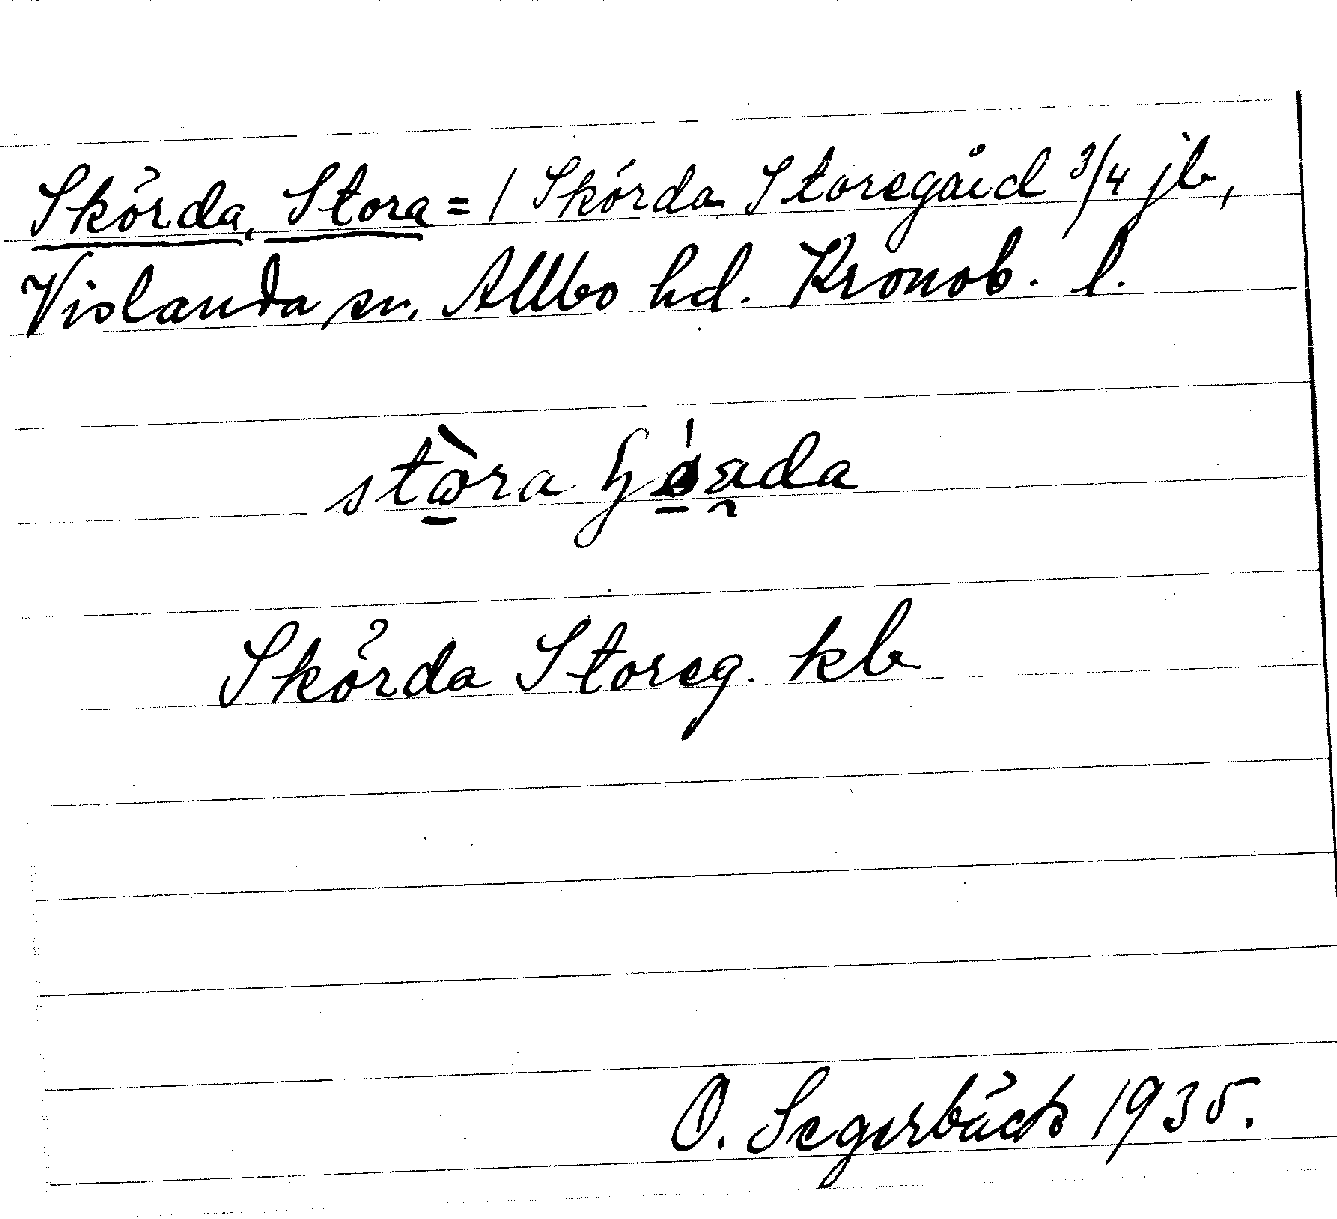 Skörda, Stora = 1 Skörda Storegård 3/4 jb,
Vislanda sn. Allbo hd. Kronob. l.
Skörda Storeg. kb
O. Segerbäck 1935.